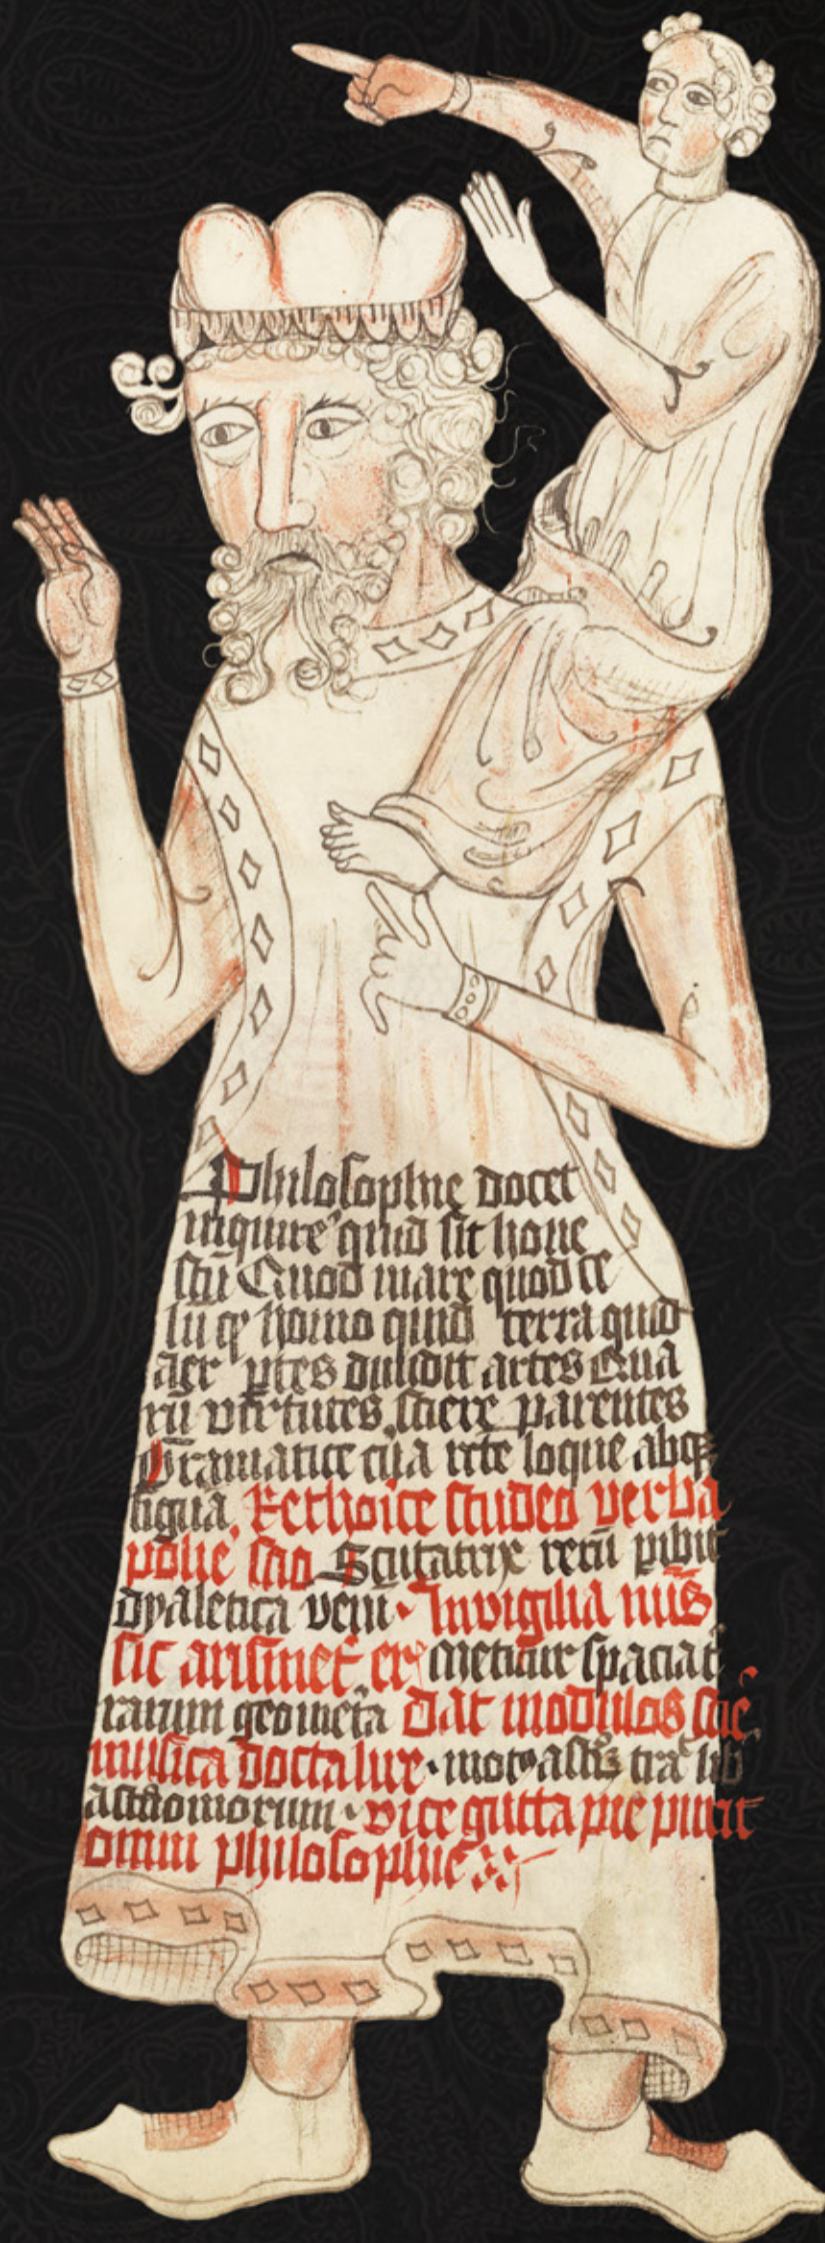 Philosophie docet
inquire quid sit hone
stū Quod mare quod ce
lū homo quid terra quid
aer ptes diuidit artes Qua
rū virtutes sciere parentes
Gramatice cūa rēte loque absq
ligua Rethoice studeo verba
polie sāo Scutatrix rerū pibit
dyaletica veni · Invigilia
sic arismet er metitur spaciat
rarum geometa Dat modulos
musica doctalux · trā lib
astronomorum · vice gutta pie pluit
omni philosophie